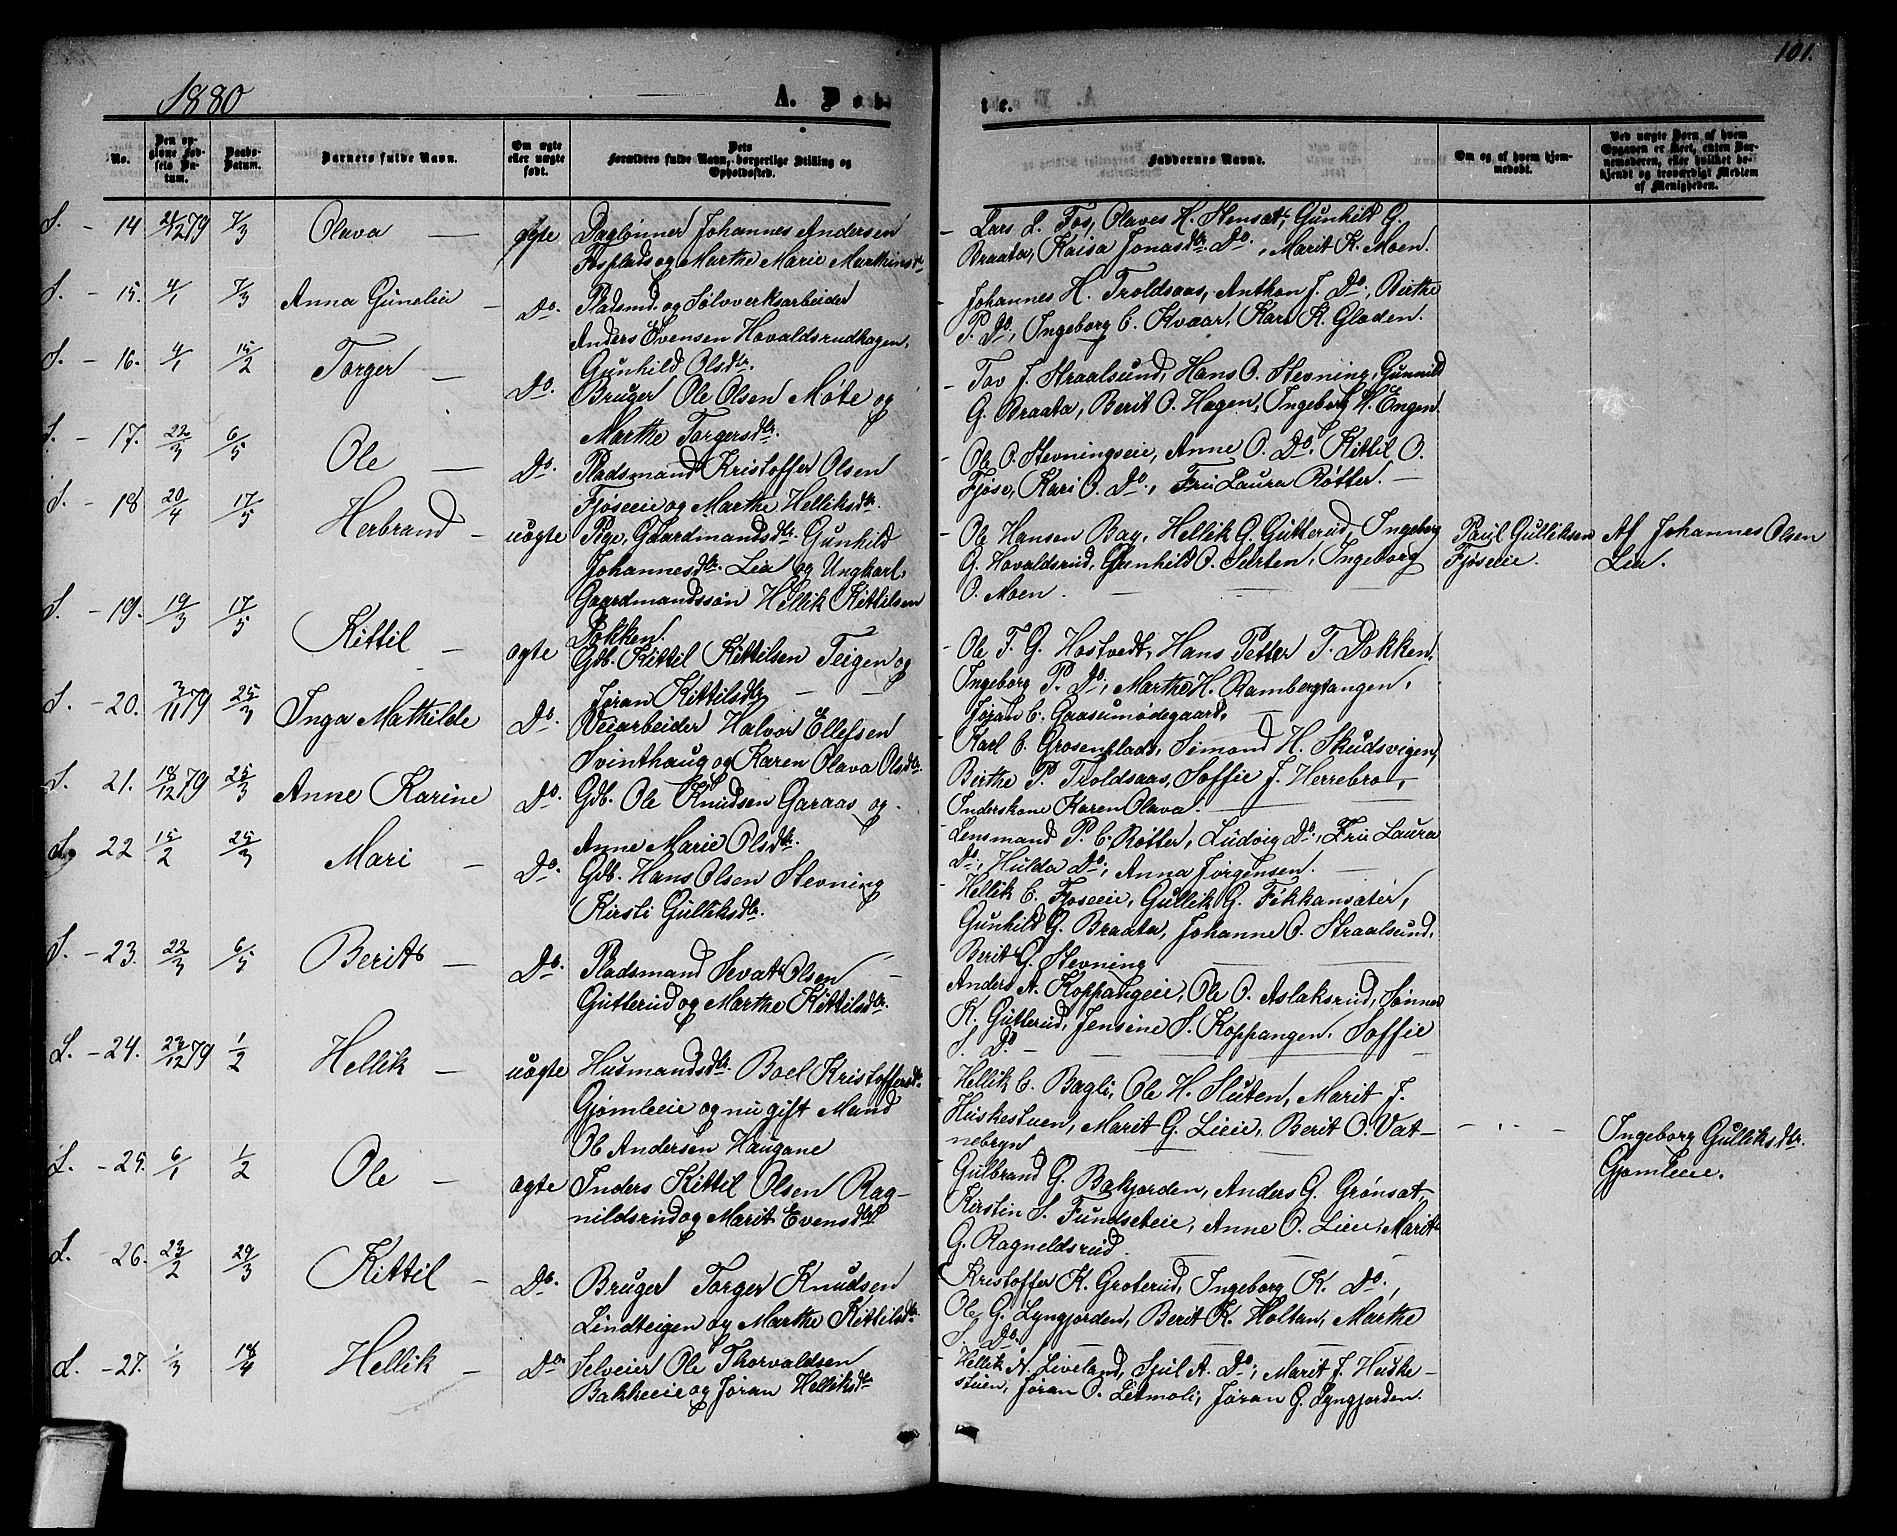 101.
1880
A. Døb-
te.
No.
Den op-
givne Fød-
sels Da-
tum.
Daabs-
Datum.
Barnets fulde Navn.
Om ægte
eller uægte
født.
Dets
Forældres fulde Navn, borgerlige Stilling og
Opholdssted.
Faddernes Navne.
Om og af hvem hjem-
medøbt.
Ved uægte Børn af hvem
Opgaven er skeet, enten Bar-
nemoderen, eller hvilket be-
kjendt og troværdigt Medlem
af Menigheden.
S. - 14 21/12 79 7/3 Olava — ægte
Daglønner Johannes Andersen
Fosplads og Marthe Marie Marthinsdtr
- Lars L. Fos, Olaves H. Stensat, Gunhild G.
Braata, Kaisa Jonasdtr. Do., Marit K. Moen.
S. - 15. 4/1 7/3 Anna Gunelie — Do.
Pladsmd. og Sølvverksarbeider
Anders Evensen Hovaldsrudhagen,
Gunhild Olsdtr.
- Johannes H. Troldsaas, Anthon J. Do., Birthe
P. Do, Ingeborg C. Kvaar, Kari K. Gladen.
S. - 16. 4/1 15/2 Torger — Do.
Bruger Ole Olsen Möte og
Marthe Torgersdtr.
- Tov J. Straalsund, Hans O. Stevning, Gunhild
G. Braata, Berit O. Hagen, Ingeborg H. Engen.
S. - 17. 22/3 6/5 Ole — Do.
Pladsmand Kristoffer Olsen
Fjøseie og Marthe Helliksdtr.
- Ole O. Stevningseie, Anne O. Do, Kittil O.
Fjøse, Kari O. Do., Fru Laura Røtter. —
S. - 18 20/4 17/5 Herbrand — uægte
Pige, Gaardmandsdtr. Gunhild
Johannesdtr. Lia og Ungkarl,
Gaardmandssøn Hellik Kittilsen
Dokken.
- Ole Hansen Bay, Hellik G. Gutterud, Ingeborg
G. Hovaldsrud, Gunhild O. Selsten, Ingeborg
O. Moen. — — —
Paul Gulliksen
Fjøseie.
Af Johannes Olsen
Lia.
S. - 19. 19/3 17/5 Kittil — ægte
Gdb. Kittil Kittilsen Teigen og
Jøran Kittilsdtr — —
- Ole T. G. Hostvedt, Hans Petter T. Dokken,
Ingeborg P. Do, Marthe H. Rambergtangen,
Jøran C. Gaasumødegaard. —
S. - 20. 3/11 79 25/3 Inga Mathilde Do.
Veiarbeider Halvor Ellefsen
Svinthaug og Karen Olava Olsdtr.
- Karl C. Grosenplads, Simond H. Skudsvigen,
Birthe P. Troldsaas, Soffie J. Herrebro,
Inderskone Karen Olava. —
S. 21. 18/12 79 25/3 Anne Karine Do.
Gdb. Ole Knudsen Garaas og
Anne Marie Olsdtr.
Lensmand P. C. Røtter, Ludvig Do., Fru Laura
Do, Hulda Do, Anna Jørgensen. —
S. 22 15/2 25/3 Mari — Do.
Gdb. Hans Olsen Stevning
Kirsti Gulliksdtr.
- Hellik C. Fjøseeie, Gullik G. Fekkansæter,
Gunhild G. Braata, Johanne O. Straalsund,
Berit G. Stevning
S. - 23. 22/3 6/5 Berit — Do.
Pladsmand Sevat Olsen —
Gutterud og Marthe Kittilsdtr.
Anders A. Koppangeie, Ole O. Aslaksrud, Sønnev
K. Gutterud, Jensine S. Koppangen, Soffie
S. Do — — —
L. - 24. 23/12 79 1/2 Hellik — uægte
Husmandsdtr. Boel Kristoffersdtr.
Gjømleeie og nu gift Mand
Ole Andersen Haugane
Hellik C. Bagli, Ole H. Sluten, Marit J.
Huskestuen, Marit G. Lieie, Berit O. Vat-
nebryn — —
- . -
Ingeborg Gulliksdtr.
Gjømleeie.
L. - 25. 6/1 1/2 Ole — ægte
Inders Kittil Olsen Rag-
nildsrud og Marit Evensdtr
Gulbrand G. Bakjorden, Anders G. Grønsat,
Kirstin S. Fundseteie, Anne O. Lieie, Marit
G. Ragneldsrud. — — —
L. - 26. 23/2 29/3 Kittil — Do.
Bruger Torger Knudsen
Lindteigen og Marthe Kittilsdtr.
Kristoffer K. Groterud, Ingeborg K. Do,
Ole G. Lyngjorden, Berit K. Holtan, Marthe
S. Do. — — —
L. - 27. 1/3 18/4 Hellik — Do.
Selveier Ole Thorvaldsen
Bakkeeie og Jøran Helliksdtr
Hellik N. Liveland, Sjul A. Do, Marit J. Huske-
stuen, Jøran O. Letmoli, Jøran G. Lyngjorden.